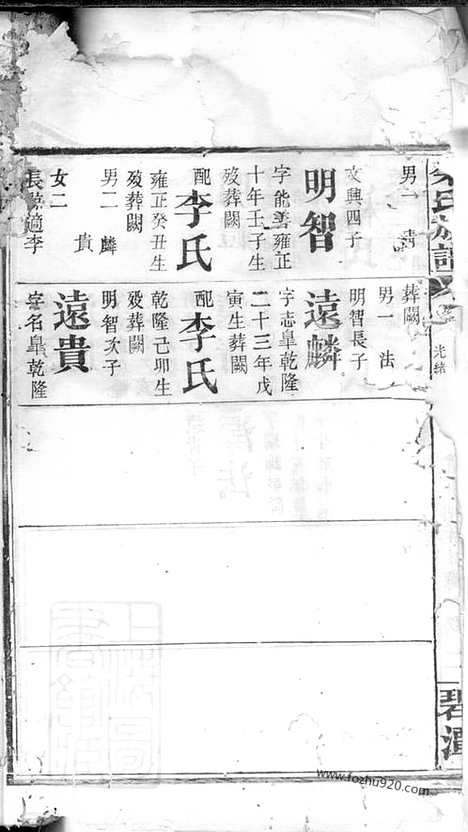 族譜
光緒
碧
男一
文興四子
明智
字能善雍正
十年壬子生
歿葬闕
配李氏
雍正癸丑生
歿葬闕
男二 麟
貴
女二
長
適李
葬闕
男一 法
明智長子
遠麟
字志阜乾隆
二十三年戊
寅生葬闕
配李氏
乾隆己卯生
歿葬闕
明智次子
遠貴
字名阜乾隆
www.fozhu920.com